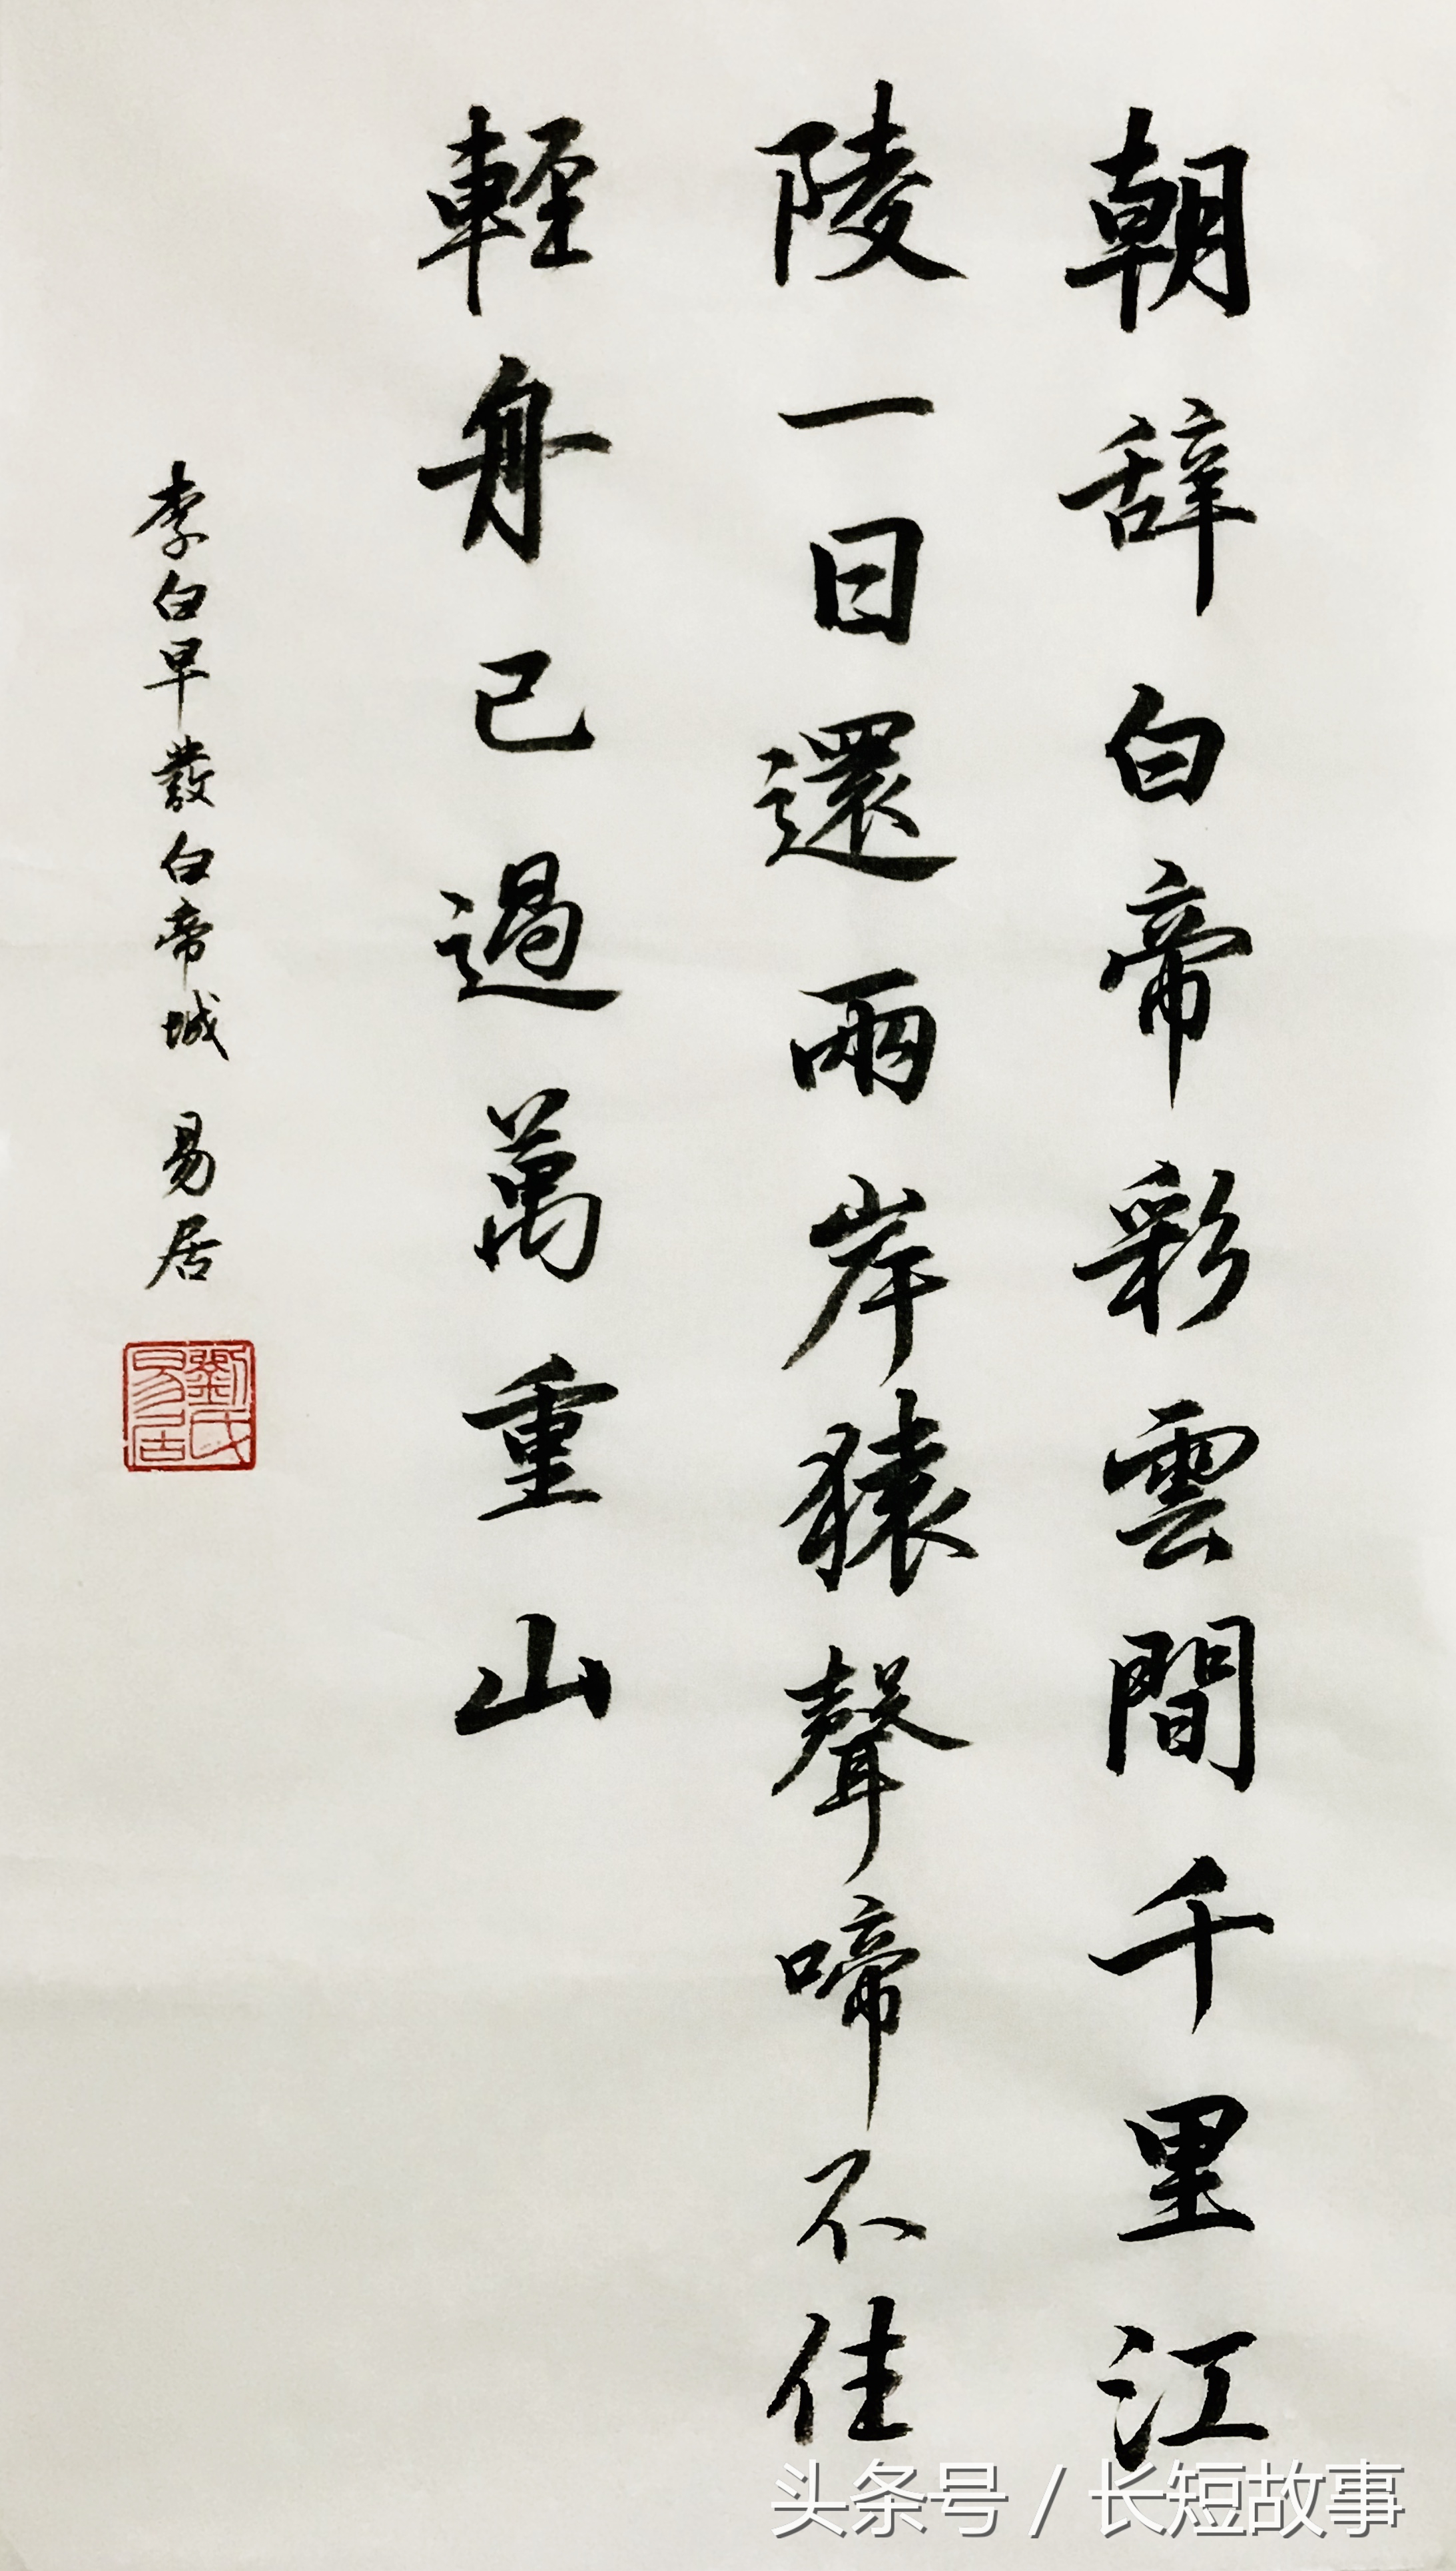 朝辞白帝彩雲間千里江
陵一日還兩岸猿聲啼不住
輕舟已過萬重山
李白早發白帝城 易居
劉氏易居
头条号 / 长短故事